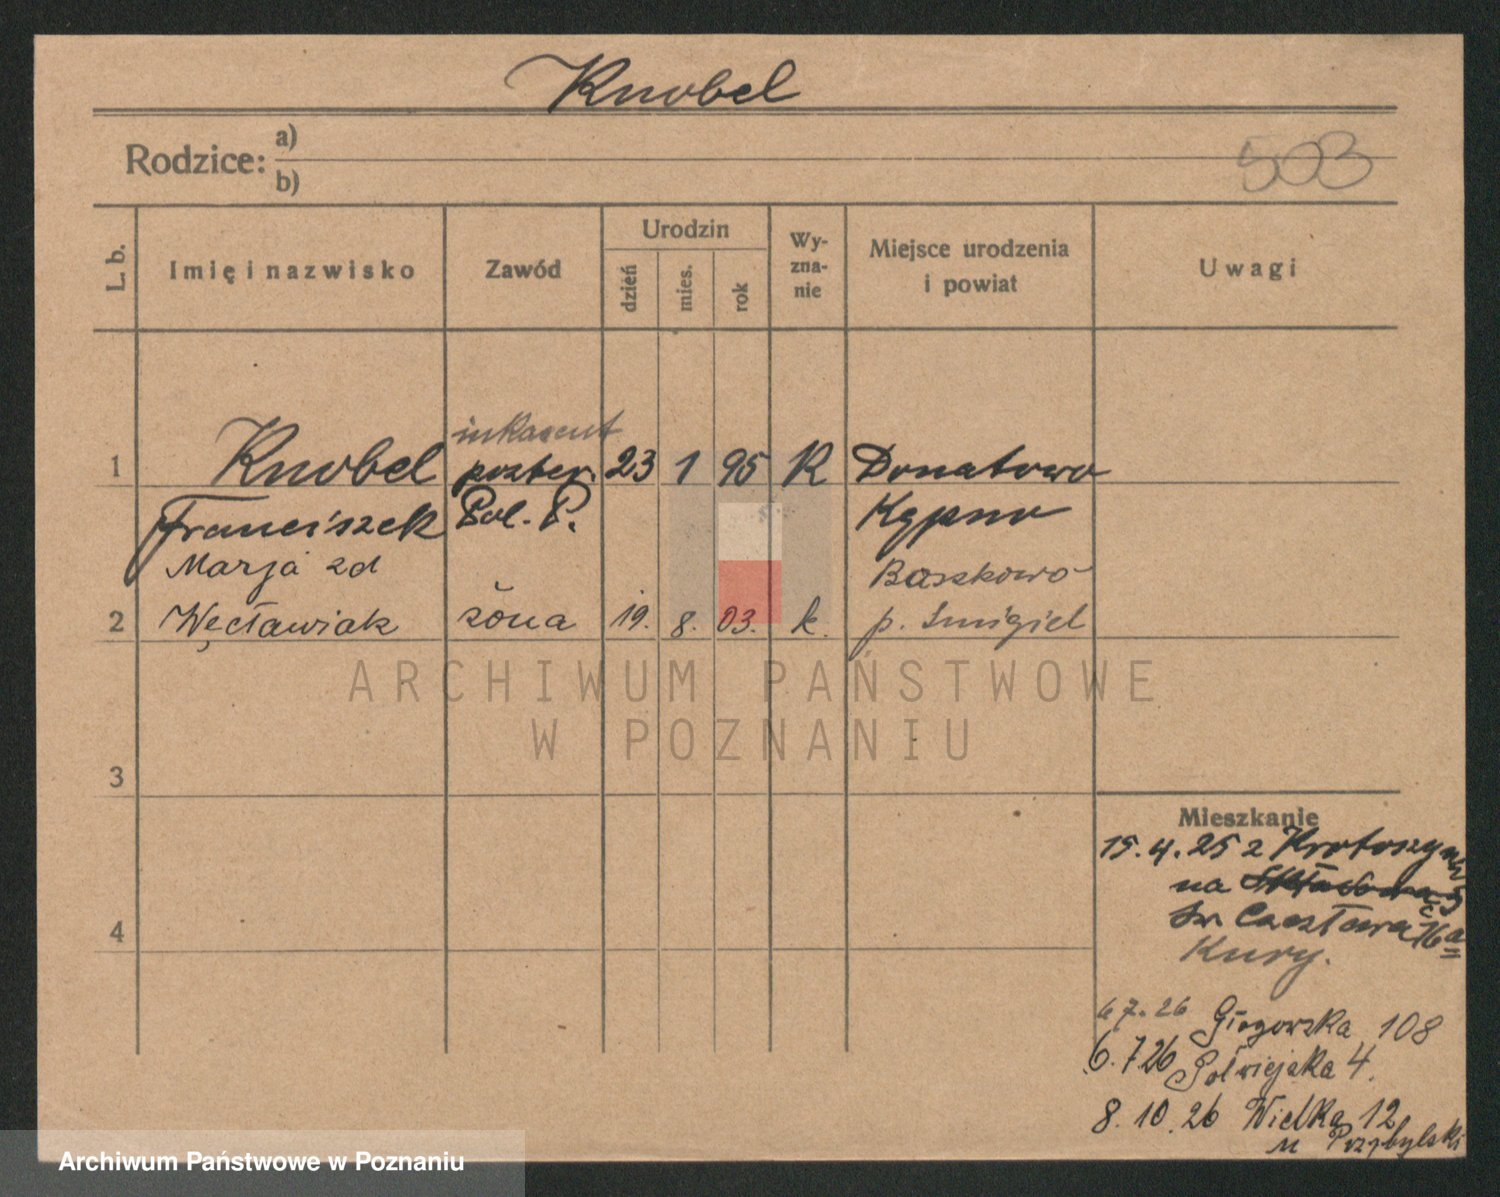 Knobel
Rodzice: a)
b)
503
L. b.
Imię i nazwisko
Zawód
Urodzin
dzień
mies.
rok
Wy-
zna-
nie
Miejsce urodzenia
i powiat
Uwagi
inkasent
1 Knobel poster. 23 1 95 K Donatowo
Franciszek Pol. P. Kępno
Marja zd Baszkowo
2 Węcławiak żona 19. 8. 03. k. p. Śmigiel
3
4
Mieszkanie
15.4.25 z Krotoszyna
na
Św. Czesława 16a
Kury.
6 7. 26 Głogowska 108
6. 7 26 Półwiejska 4.
8. 10. 26 Wielka 12
u Przybylski
ARCHIWUM PAŃSTWOWE
W POZNANIU
Archiwum Państwowe w Poznaniu